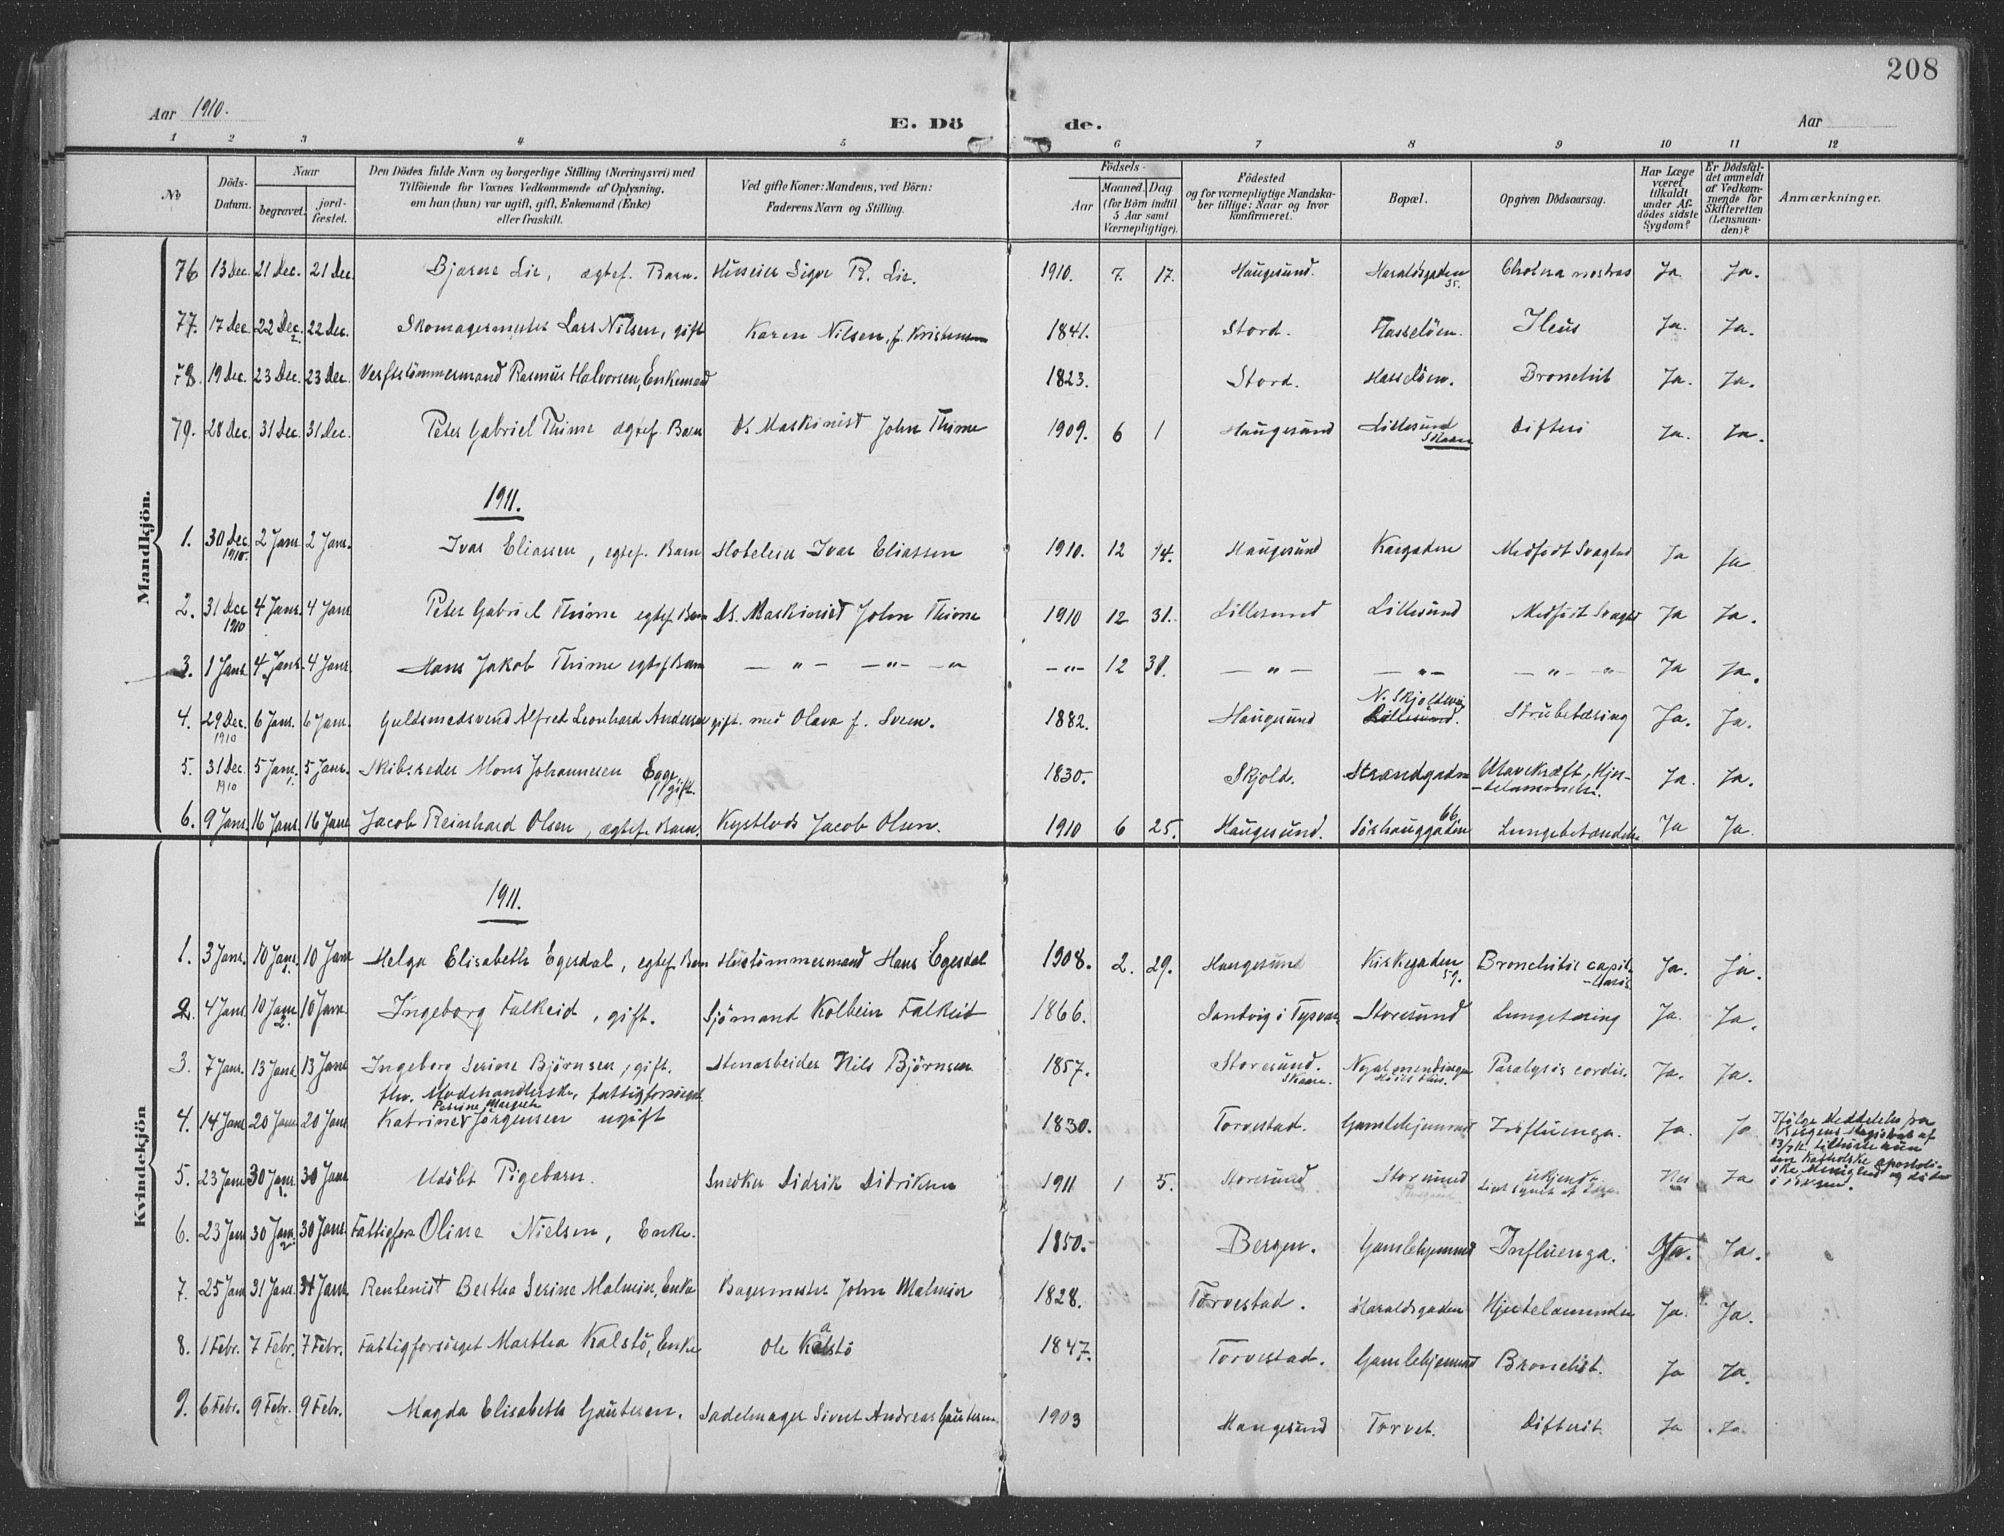 208
Aar 1910.
E. Dö
de.
Aar
1 2 3 4 5 6 7 8 9 10 11 12
No
Döds-Datum.
Naar
begravet.
jord-fæstet.
Den Dödes fulde Navn og borgerlige Stilling (Næringsvei) med
Tilföiende for Voxnes Vedkommende af Oplysning,
om han (hun) var ugift, gift, Enkemand (Enke)
eller fraskilt.
Ved gifte Koner: Mandens, ved Börn:
Faderens Navn og Stilling.
Födsels-
Aar
Maaned. Dag.
(for Börn indtil
5 Aar samt
Værnepligtige).
Födested
og for værnepligtige Mandska-
ber tillige: Naar og hvor
konfirmeret.
Bopæl.
Opgiven Dödsaarsag.
Har Læge
været
tilkaldt
under Af-
dödes sidste
Sygdom?
Er Dödsfal-
det anmeldt
af Vedkom-
mende for
Skifteretten
(Lensman-
den)?
Anmærkninger.
Mandkjön.
76 13 Dec. 21 Dec. 21 Dec. Bjarne Lie, ægtef. Barn. Huseier Sigv R. Lie. 1910. 7. 17. Haugesund. Haraldsgaden 35. Cholera nostras Ja. Ja.
77. 17 Dec. 22 Dec. 22 Dec. Skomagermester Lars Nilsen, gift Karen Nilsen, f. Kristensen 1841. Stord. Hasseløen. Ileus Ja. Ja.
78. 19 Dec. 23 Dec. 23 Dec. Verftstömmermand Rasmus Halvorsen, Enkemand 1823. Stord. Hasseløen. Bronchit Ja. Ja.
79. 28 Dec. 31 Dec. 31 Dec. Peter Gabriel Thime ægtef. Barn Ds. Maskinist John Thime 1909. 6 1 Haugesund Lillesund Skaare Difteri Ja. Ja.
1911.
1. 30 Dec. 1910. 2 Jans. 2 Jans. Ivar Eliassen, egtef. Barn Hoteleier Ivar Eliassen 1910. 12 14. Haugesund Kaigaden Medfödt Svaghed Ja Ja
2. 31 Dec 1910 4 Jans. 4 Jans Peter Gabriel Thime egtef. Barn Ds. Maskinist John Thime 1910 12 31. Lillesund Lillesund Medfödt Svaghed Ja Ja.
3. 1 Jans. 4 Jans. 4 Jans. Hans Jakob Thime egtef. Barn — „ — — „ — — „ — „ — 12 31. — „ — — „ — — „ — „ — Ja Ja.
4. 29 Dec. 1910 6 Jans. 6 Jans. Guldsmedsvend Alfred Leonhard Andersen gift med Olava f. Svem. 1882. Haugesund N. Skjoldavei Lillesund. Strubetæring Ja. Ja.
5. 31 Dec. 1910 5 Jans. 5 Jans. Skibsreder Mons Johannesen Egge, gift. 1830. Skjold. Strandgaden Mavekræft, Hjer-telammelse. Ja. Ja.
6. 9 Jans. 16 Jans. 16 Jans Jacob Reinhard Olsen, ægtef. Barn. Kystlods Jacob Olsen. 1910 6 25. Haugesund. Sörhauggaden 66. Lungebetændelse Ja Ja.
Kvindekjön
1911.
1. 3 Jans. 10 Jans. 10 Jans Helga Elisabeth Egesdal, egtef. Barn Hustömmermand Hans Egesdal 1908. 2. 29. Haugesund Kirkegaden 59. Bronchitis capil-laris Ja. Ja.
2. 4 Jans 10 Jans 10 Jans Ingeborg Falkeid, gift. Sjömand Kolbein Falkeid 1866. Sandvig i Tysvær Storesund Lungetæring Ja. Ja.
3. 7 Jans. 13 Jans. 13 Jans Ingeborg Serine Bjørnsen, gift. Stenarbeider Nils Björnsen 1857. Storesund. Skaare. Paralysis cordis. Ja. Ja.
fhv. Modehandlerske, fattigforsørget
4. 14 Jans 20 Jans 20 Jans Petrine Margrete Katrine Jörgensen ugift 1830. Torvestad. Gamlehjemmet Influenza. Ja. Ja
Ifölge Meddelelse fra
Bergens Magistrat af
13/7 12 tilhörte hun
den katholske apostoli-
ske Menighed og döde
i Bergen.
5. 23 Jans 30 Jans. 30 Jans Udöbt Pigebarn. Snedker Didrik Didriksen 1911 1 5. Storesund Storesund ukjendt Nei Ja
6. 23 Jans 30 Jans. 30 Jans. Fattigfors. Oline Nielsen, Enke. 1850. Bergen. Gamlehjemmet Influenza. Ja. Ja.
7. 25 Jans 31 Jans. 31 Jans. Rentenist Bertha Serine Malmin, Enke Bagermester John Malmin 1828. Torvestad. Haraldsgaden Hjertelammelse Ja. Ja.
8. 1 Febr. 7 Febr. 7 Febr. Fattigforsörget Martha Kalstö, Enke Ole Kalstö 1847. Torvestad. Gamlehjemmet Bronchit. Ja Ja.
9. 6 Febr. 9 Febr. 9 Febr. Magda Elisabeth Gautesen. Sadelmager Sivert Andreas Gautesen 1903 Haugesund Torvet. Difterit. Ja Ja.